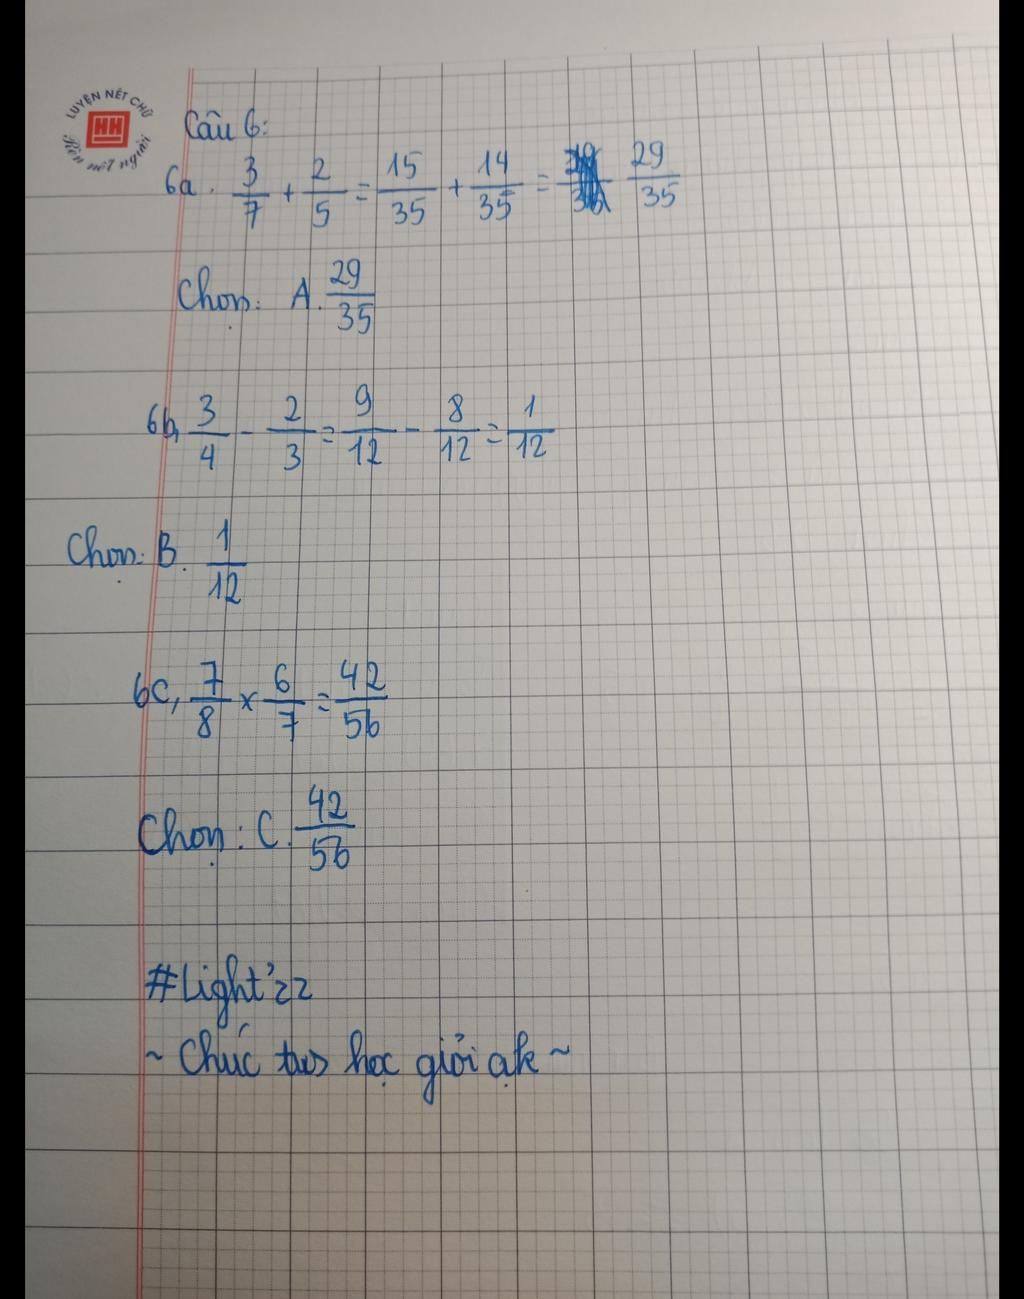 LUYỆN NÉT CHỮ
HH
Rèn nết người
Câu 6:
6a. 3/7 + 2/5 = 15/35 + 14/35 = 29/35
Chọn: A. 29/35
6b, 3/4 - 2/3 = 9/12 - 8/12 = 1/12
Chọn: B. 1/12
6C, 7/8 x 6/7 = 42/56
Chọn: C. 42/56
#Light'zz
~ Chúc tus học giỏi ạk ~